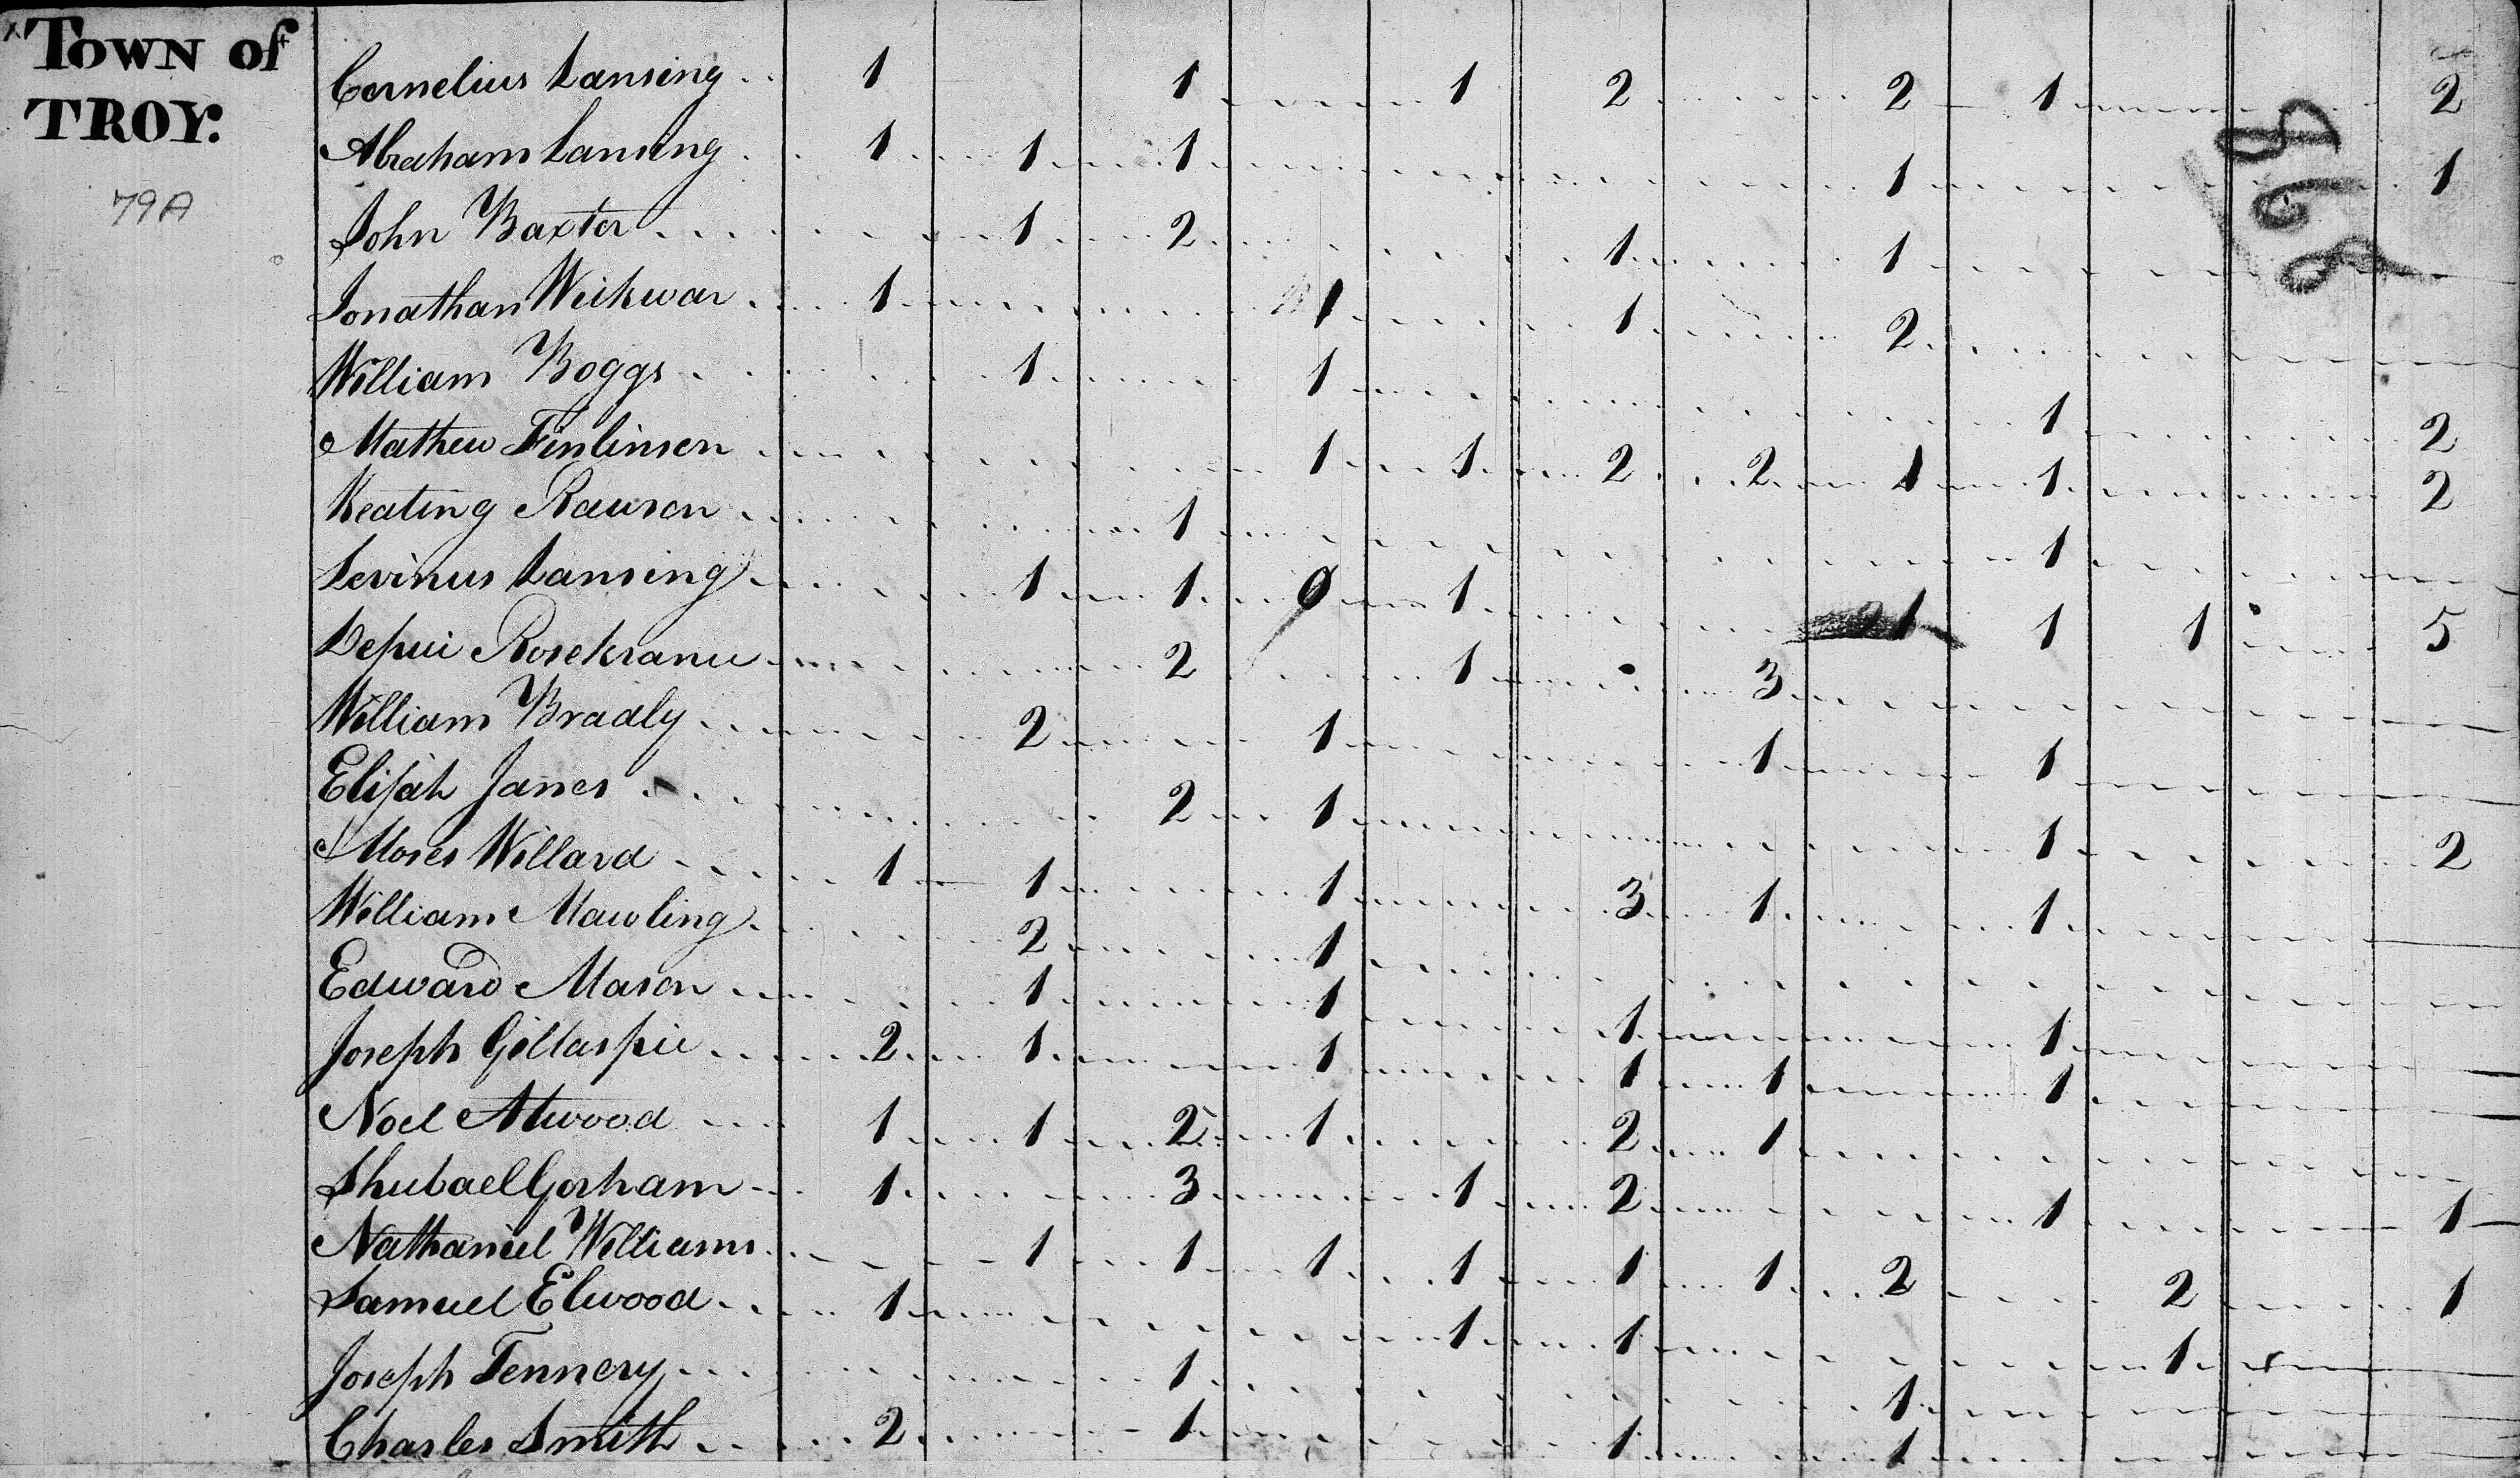 TOWN of
TROY.
79A
868
Cornelius Lansing 1 1 1 2 2 1 2
Abraham Lansing 1 1 1 1 1
John Baxter 1 2 1 1
Jonathan Weikwar 1 1 1 2
William Boggs 1 1 1 2
Mathew Finlinson 1 1 2 2 1 1 2
Keating Rawson 1 1
Levinus Lansing 1 1 0 1 1 1 1 5
Depui Rosekranse 2 1 3
William Bradly 2 1 1 1
Elijah Janes 2 1 1 2
Moses Willard 1 1 1 3 1 1
William Mawling 2 1
Edward Mason 1 1 1 1
Joseph Gillaspie 2 1 1 1 1 1
Noel Atwood 1 1 2 1 2 1
Shubael Gorham 1 3 1 2 1 1
Nathaniel Williams 1 1 1 1 1 1 2 2 1
Samuel Elwood 1 1 1 1
Joseph Tennery 1 1
Charles Smith 2 1 1 1